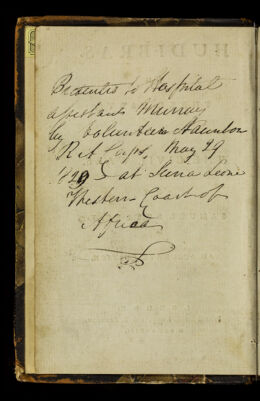 Presented to Hospital
assistant Murray
by Volunteer Staunton
May 29
1829 at Siera Leone
Western Coast of
Africa